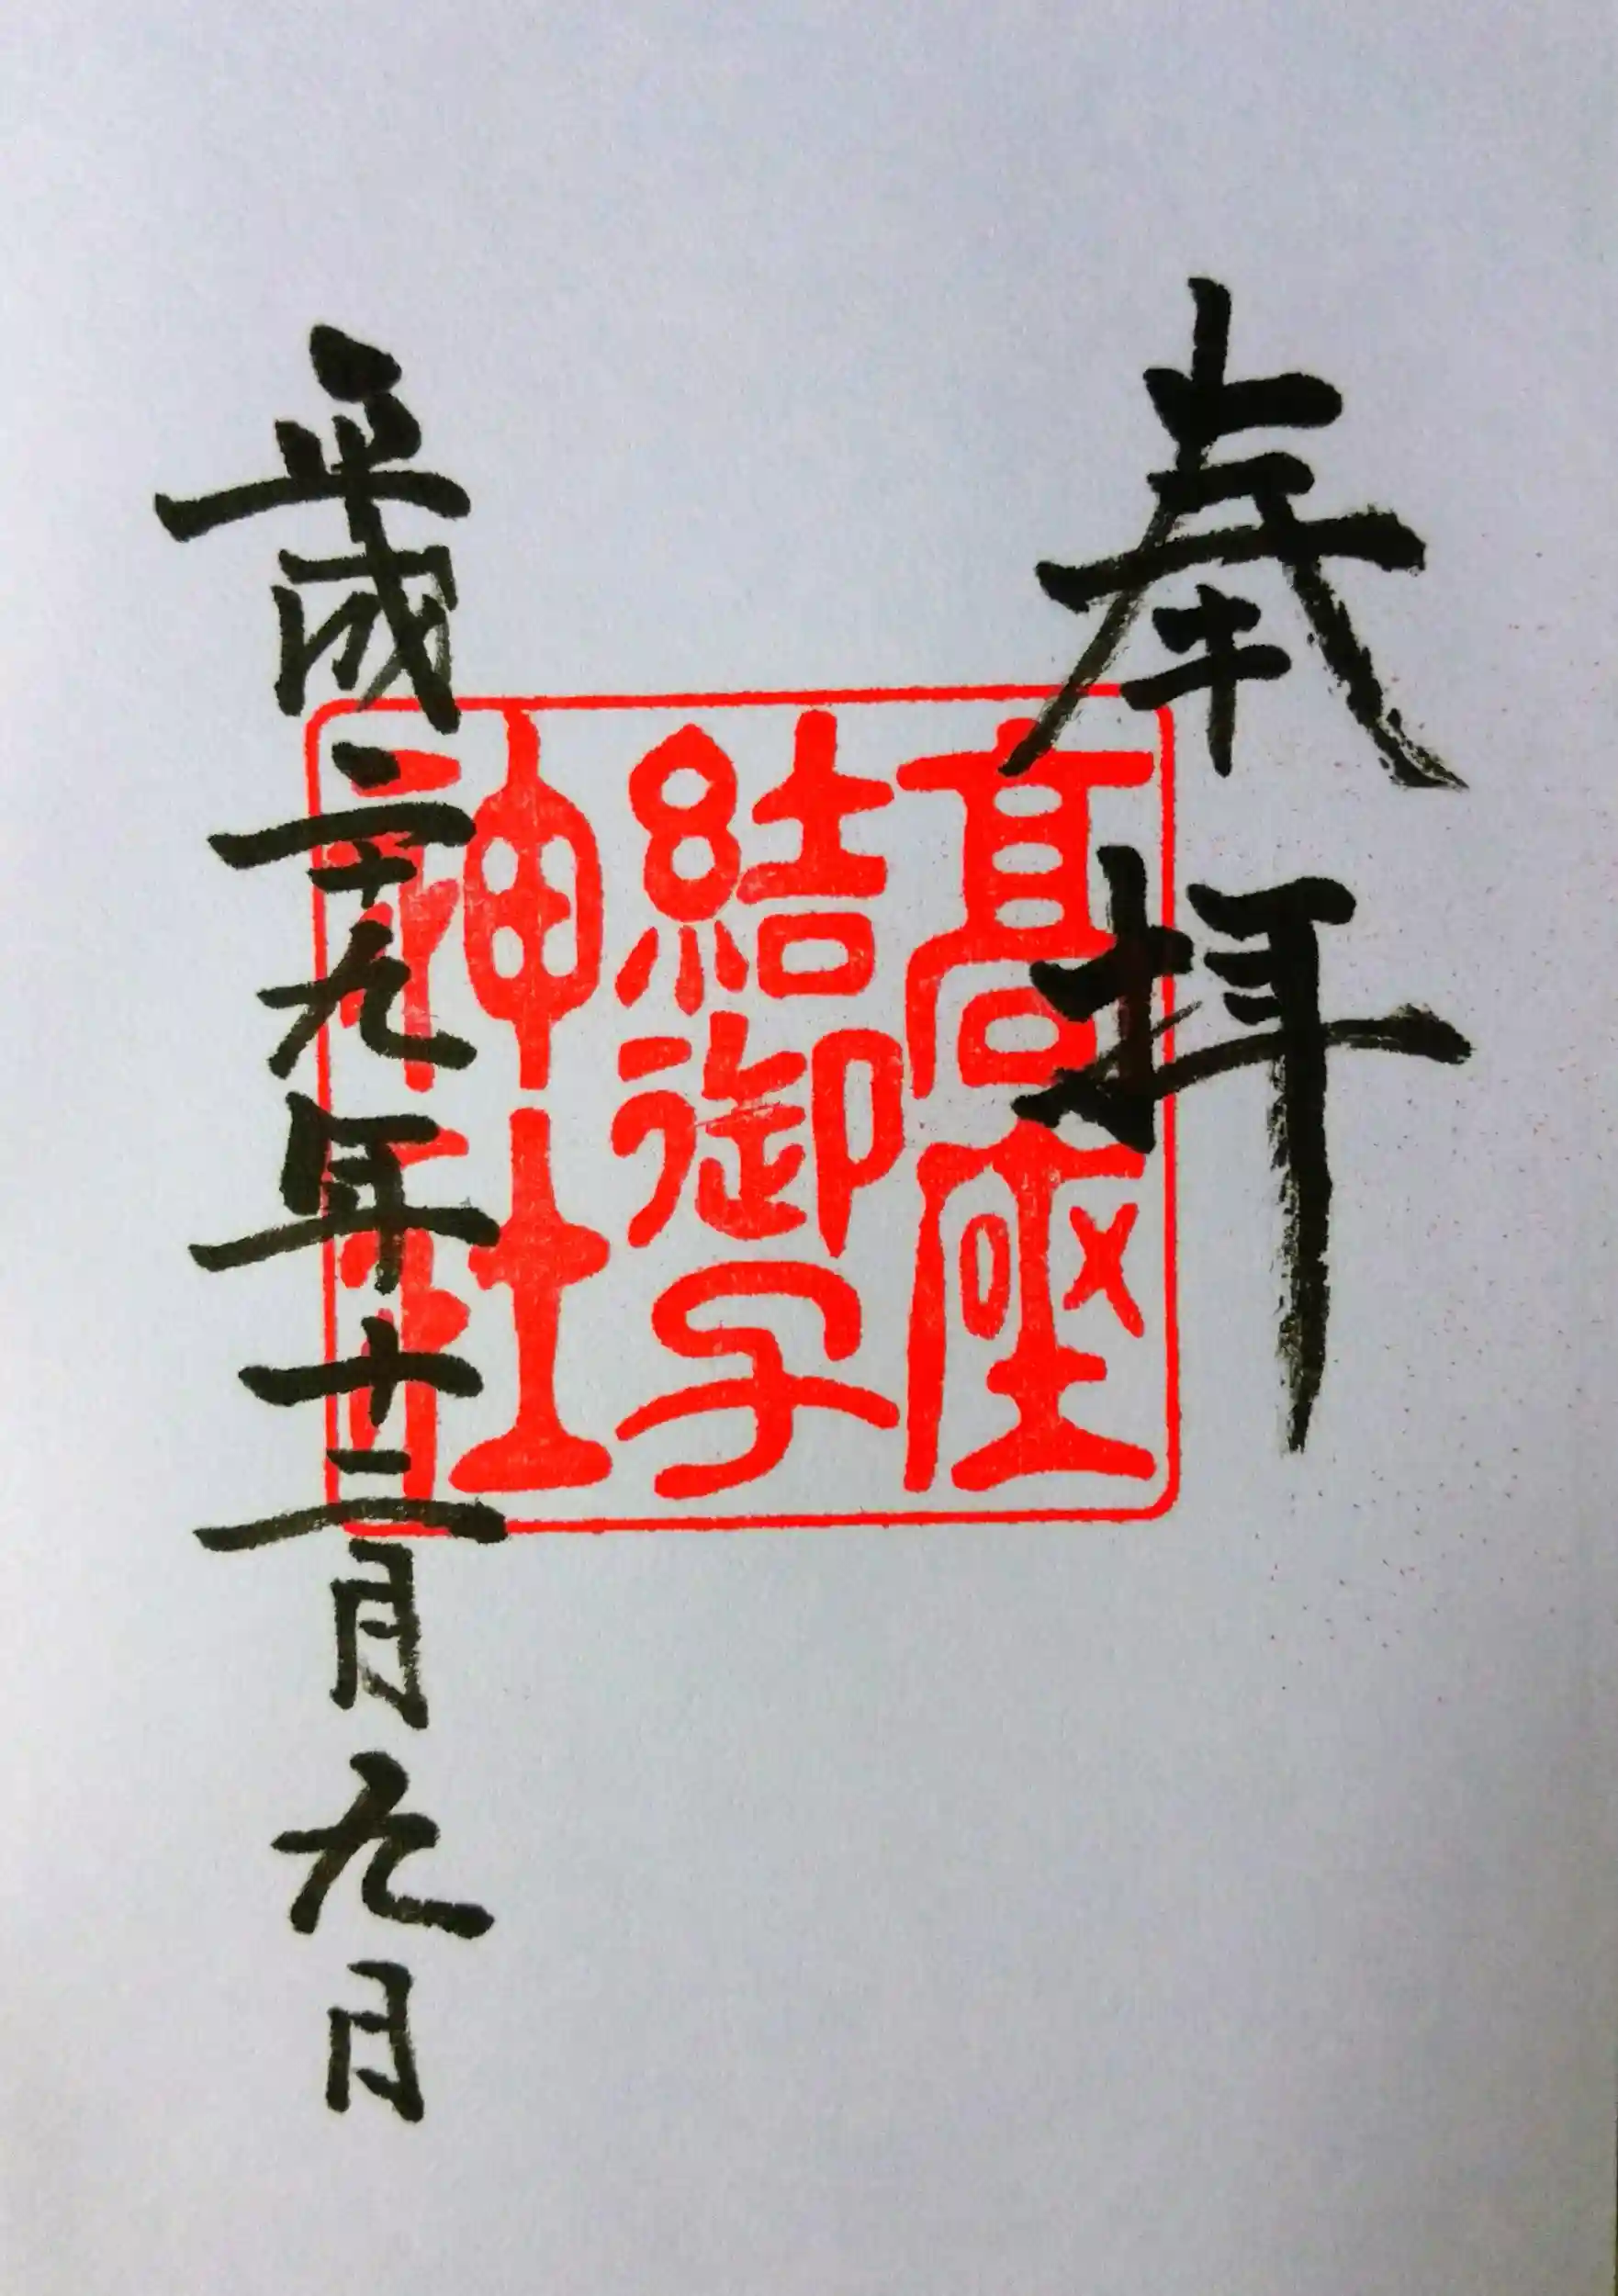 奉拝
高座
結御子
神社
平成二十九年十二月九日